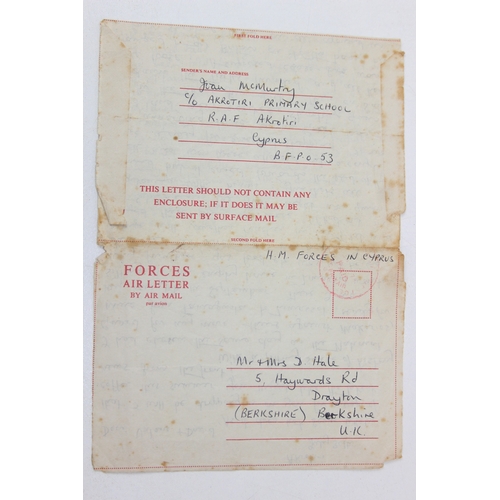 FIRST FOLD HERE
SENDER'S NAME AND ADDRESS
Joan McMurtry
C/o AKROTIRI PRIMARY SCHOOL
R.A.F Akrotiri
Cyprus
B.F.P.O. 53
THIS LETTER SHOULD NOT CONTAIN ANY
ENCLOSURE; IF IT DOES IT MAY BE
SENT BY SURFACE MAIL
SECOND FOLD HERE
H.M. FORCES IN CYPRUS
FORCES
AIR LETTER
BY AIR MAIL
par avion
Mr & Mrs D Hale
5, Haywards Rd
Drayton
(BERKSHIRE) Berkshire
U.K.